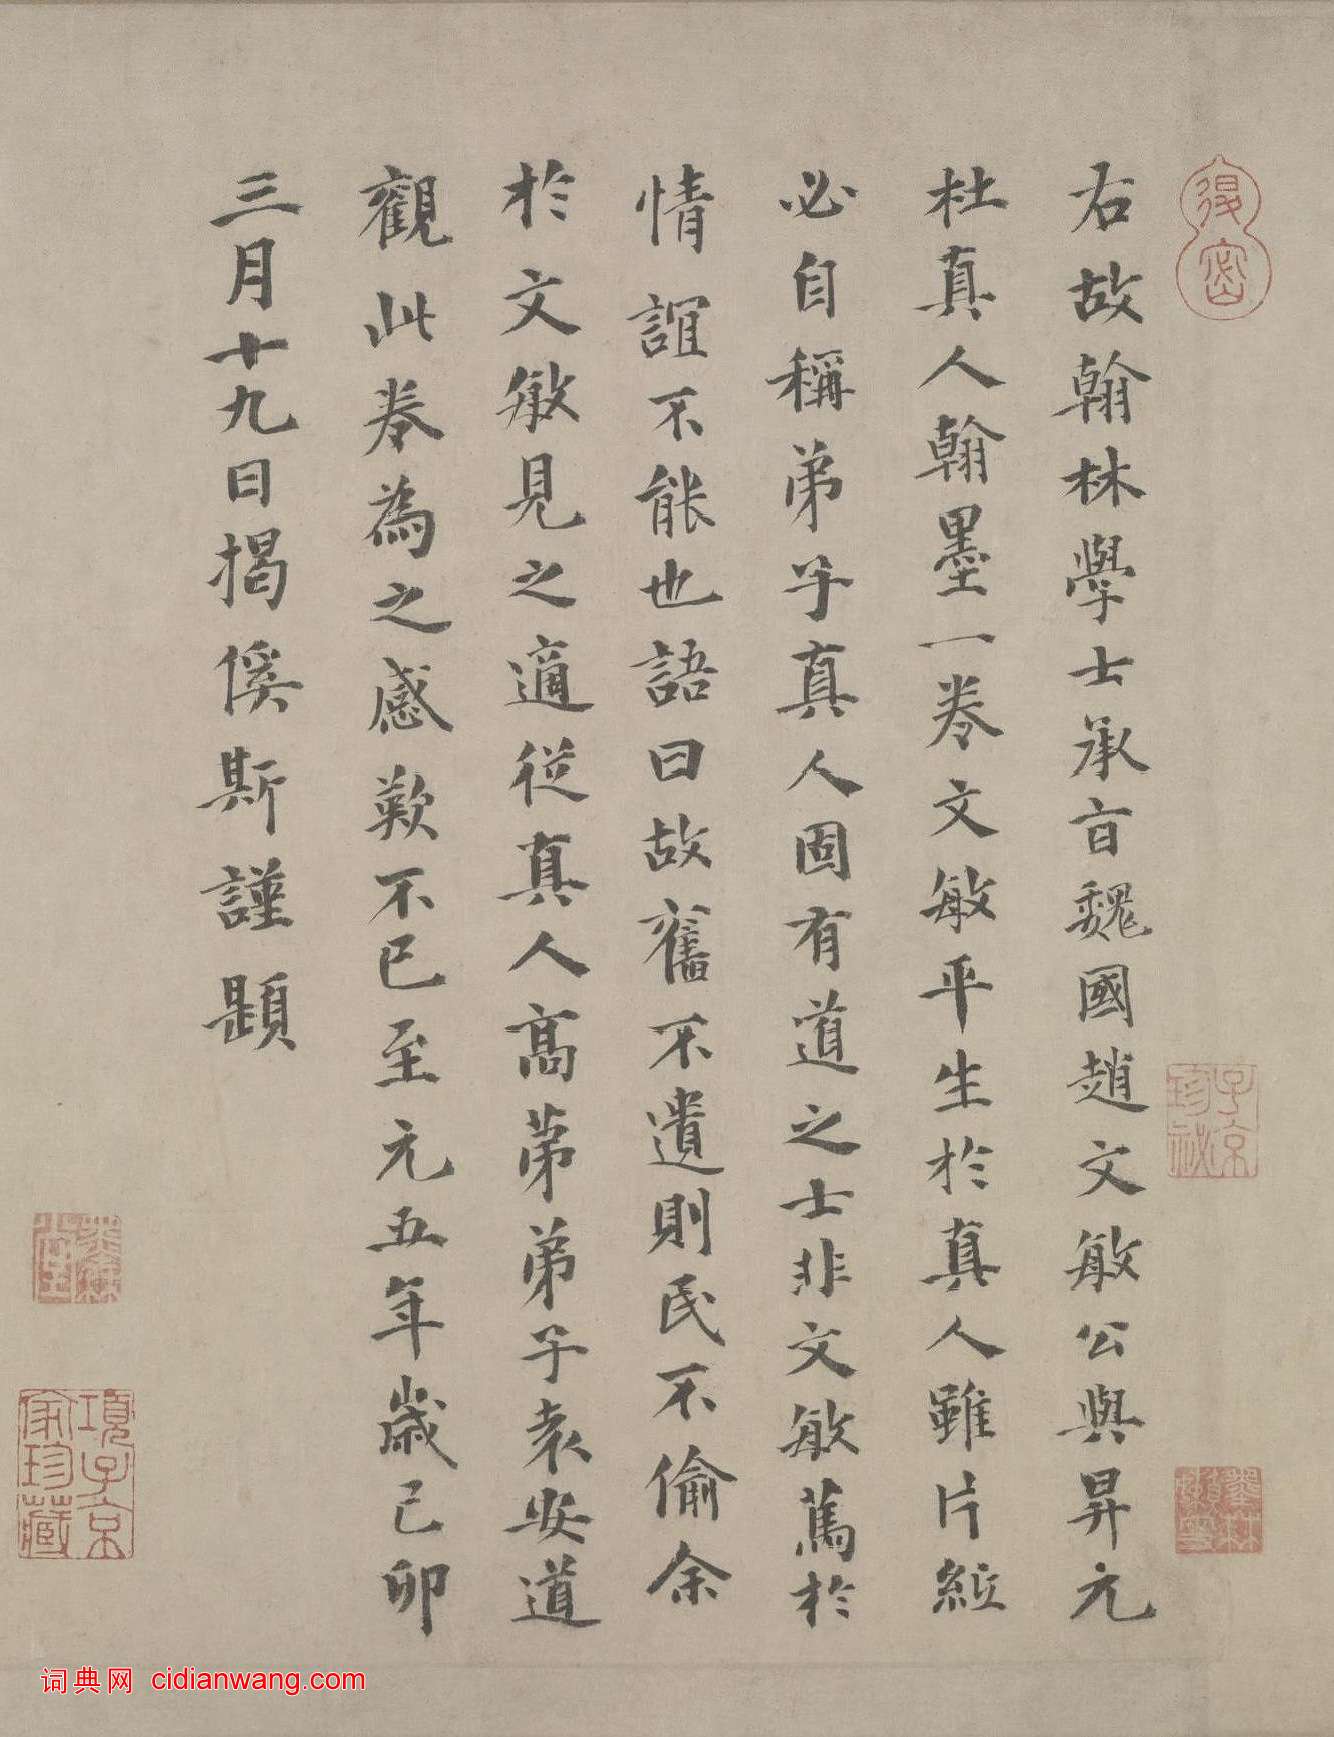 右故翰林學士承旨魏國趙文敏公與昇元
杜真人翰墨一卷文敏平生於真人雖片紙
必自稱弟子真人固有道之士非文敏篤於
情誼不能也語曰故舊不遺則民不偷余
於文敏見之適從真人高第弟子袁安道
觀此卷為之感歎不已至元五年歲己卯
三月十九日揭傒斯謹題
子京珍祕
項子京家珍藏
词典网 cidianwang.com